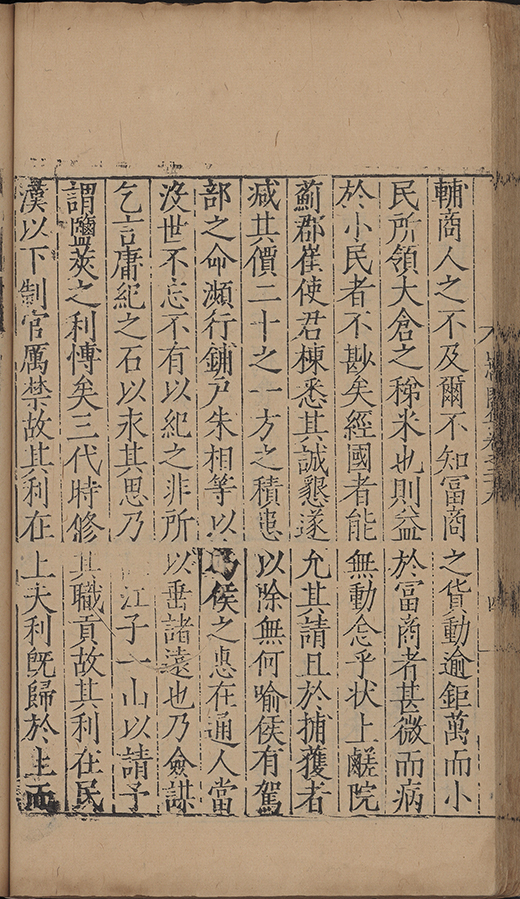 輔商人之不及爾不知富商之貨動逾鉅萬而小
民所領大倉之稊米也則益於富商者甚微而病
於小民者不尠矣經國者能無動念乎狀上鹺院
薊郡崔使君棟悉其誠懇遂允其請且於捕獲者
减其價二十之一方之積患以除無何喻侯有駕
部之命瀕行鋪戶朱相等以為侯之惠在通人當
沒世不忘不有以紀之非所以垂諸遠也乃僉謀
乞言庸紀之石以永其思乃江子一山以請予
謂鹽莢之利愽矣三代時修其職貢故其利在民
漢以下制官厲禁故其利在上夫利旣歸於上而
四